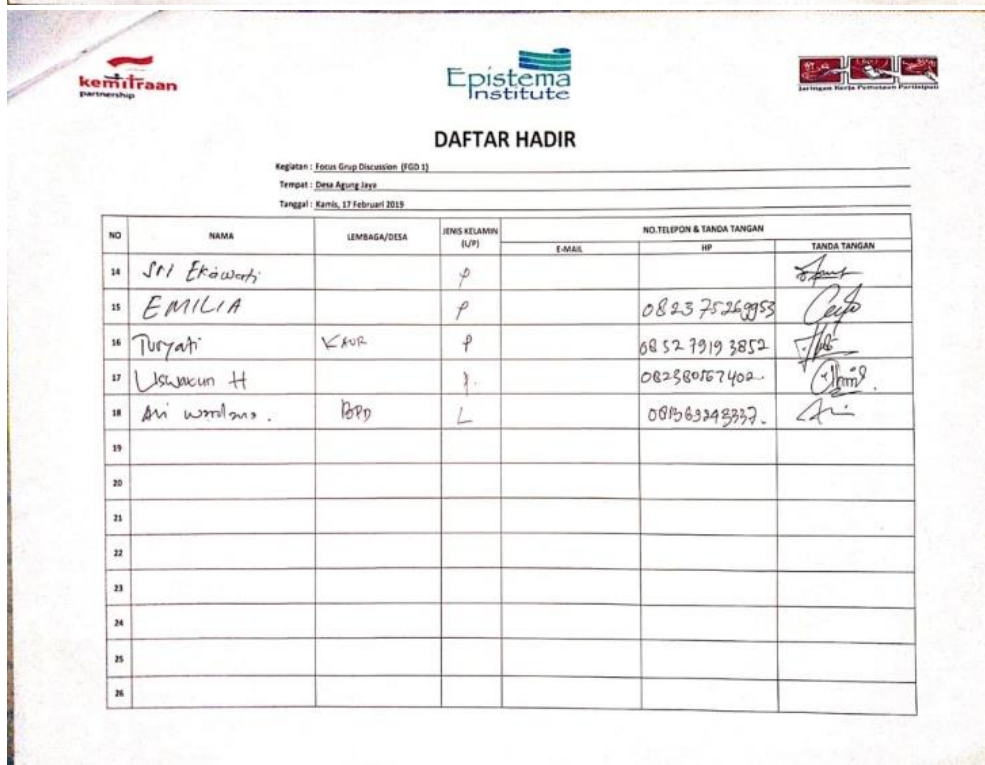 kemitraan
partnership
Epistema
Institute
Jaringan Kerja Pemetaan Partisipatif
DAFTAR HADIR
Kegiatan : Focus Grup Discussion (FGD 1)
Tempat : Desa Agung Jaya
Tanggal : Kamis, 17 Februari 2019
NO NAMA LEMBAGA/DESA JENIS KELAMIN (L/P) NO.TELEPON & TANDA TANGAN
E-MAIL HP TANDA TANGAN
14 Sri Ekawati P
15 EMILIA P 082375269953
16 Turyati KAUR P 0852 7919 3852
17 Uswakun H 082380567402.
18 Ari wardana. BPD L
19
20
21
22
23
24
25
26